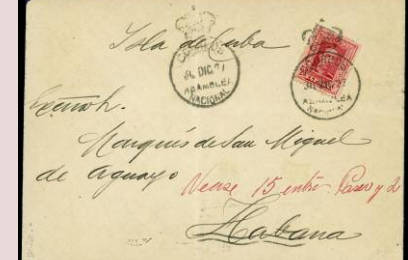 Isla de Cuba
CORREOS
31 DIC 27
ASAMBLEA
NACIONAL
ASAMBLEA
Nacional
Excmo Sr.
Marqués de San Miguel
de Aguayo
Vease 15 entre Paseo y 2
Habana